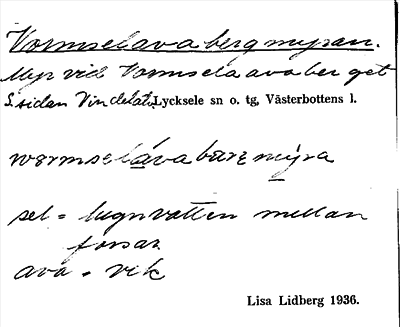 Vormselavabergmyran.
Myr vid Vormselaavaberget
S. sidan Vindelälv. Lycksele sn o. tg, Västerbottens l.
wormselávabærgmýra
sel = lugnvatten mellan
forsar
ava = vik
Lisa Lidberg 1936.